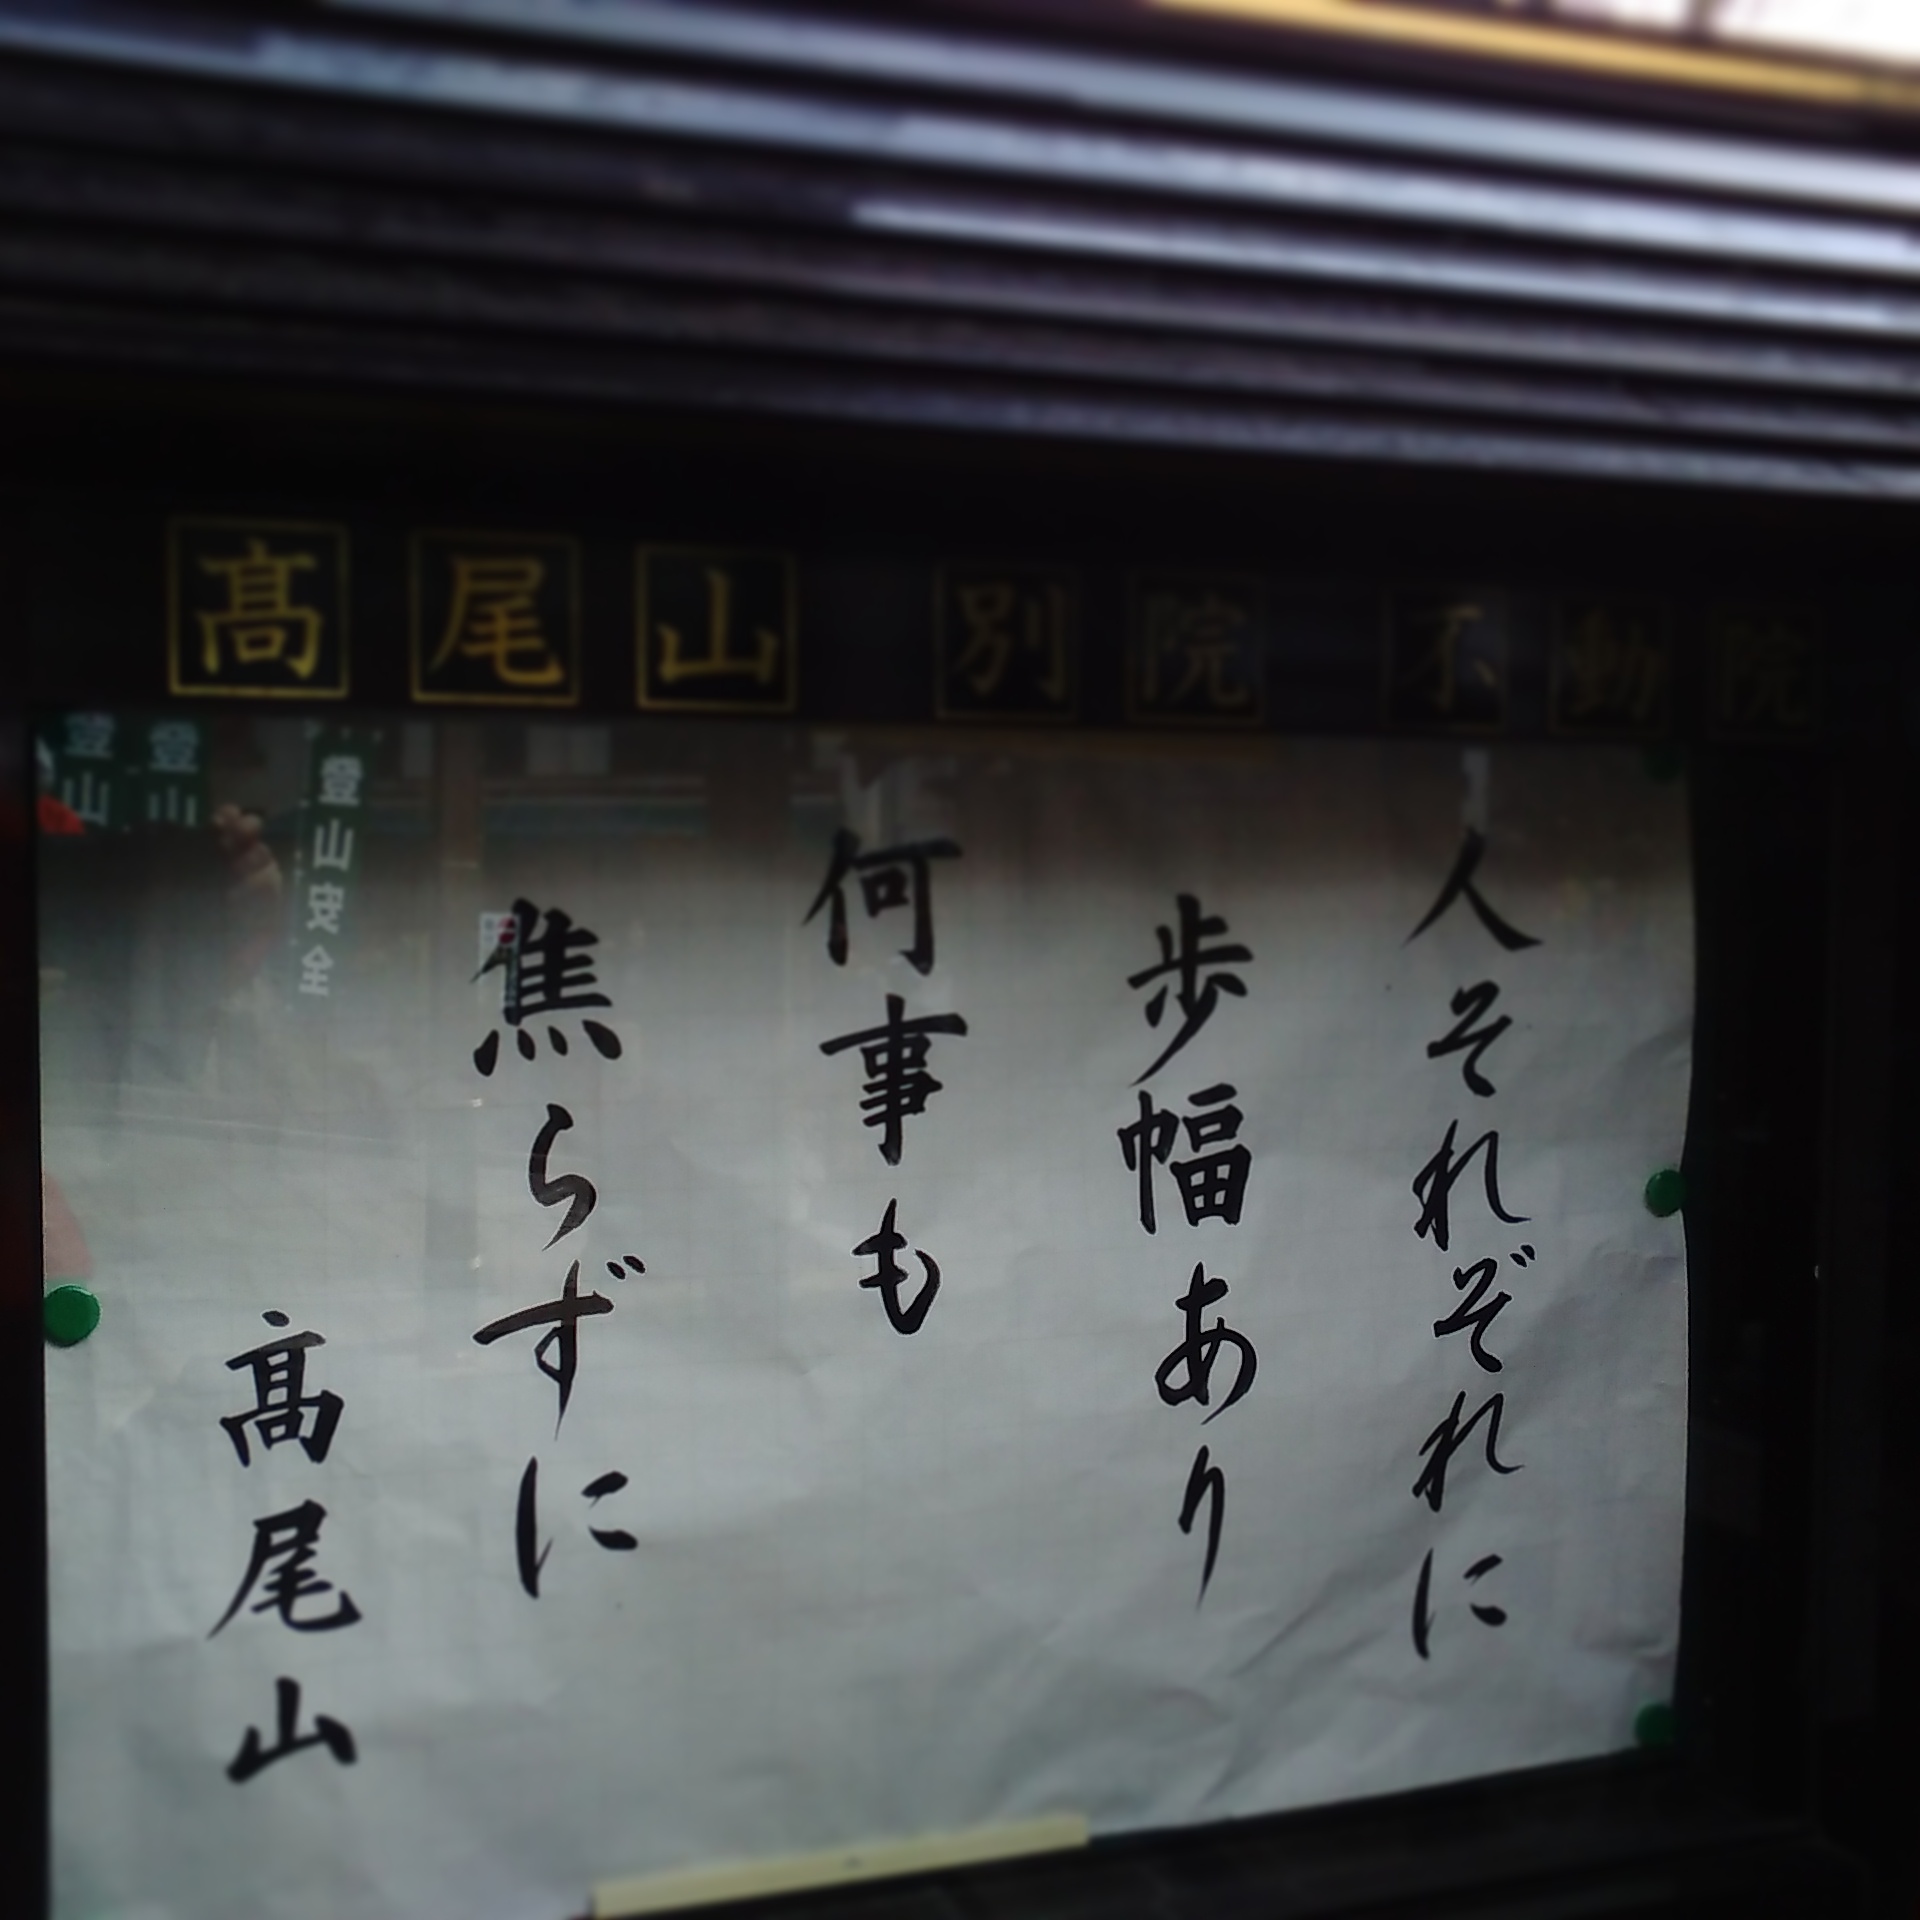 髙尾山 別院 不動院
人それぞれに
歩幅あり
何事も
焦らずに
髙尾山
登山
登山
登山安全